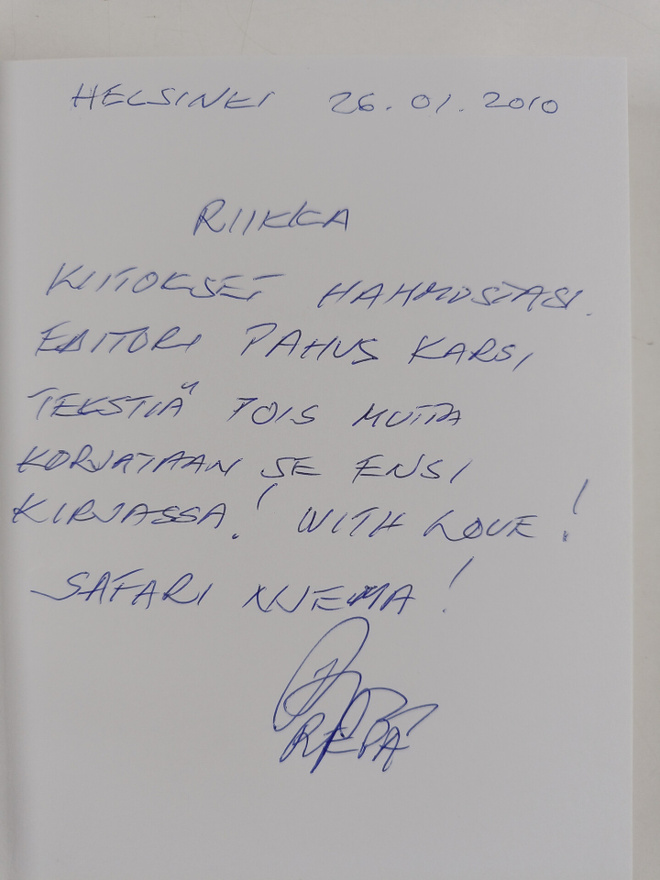 HELSINKI 26.01.2010
RIIKKA
KIITOKSET HAHMOSTASI.
EDITORI PAHUS KARSI
TEKSTIÄ POIS MUTTA
KORJATAAN SE ENSI
KIRJASSA! WITH LOVE!
SAFARI NJEMA!
REPA